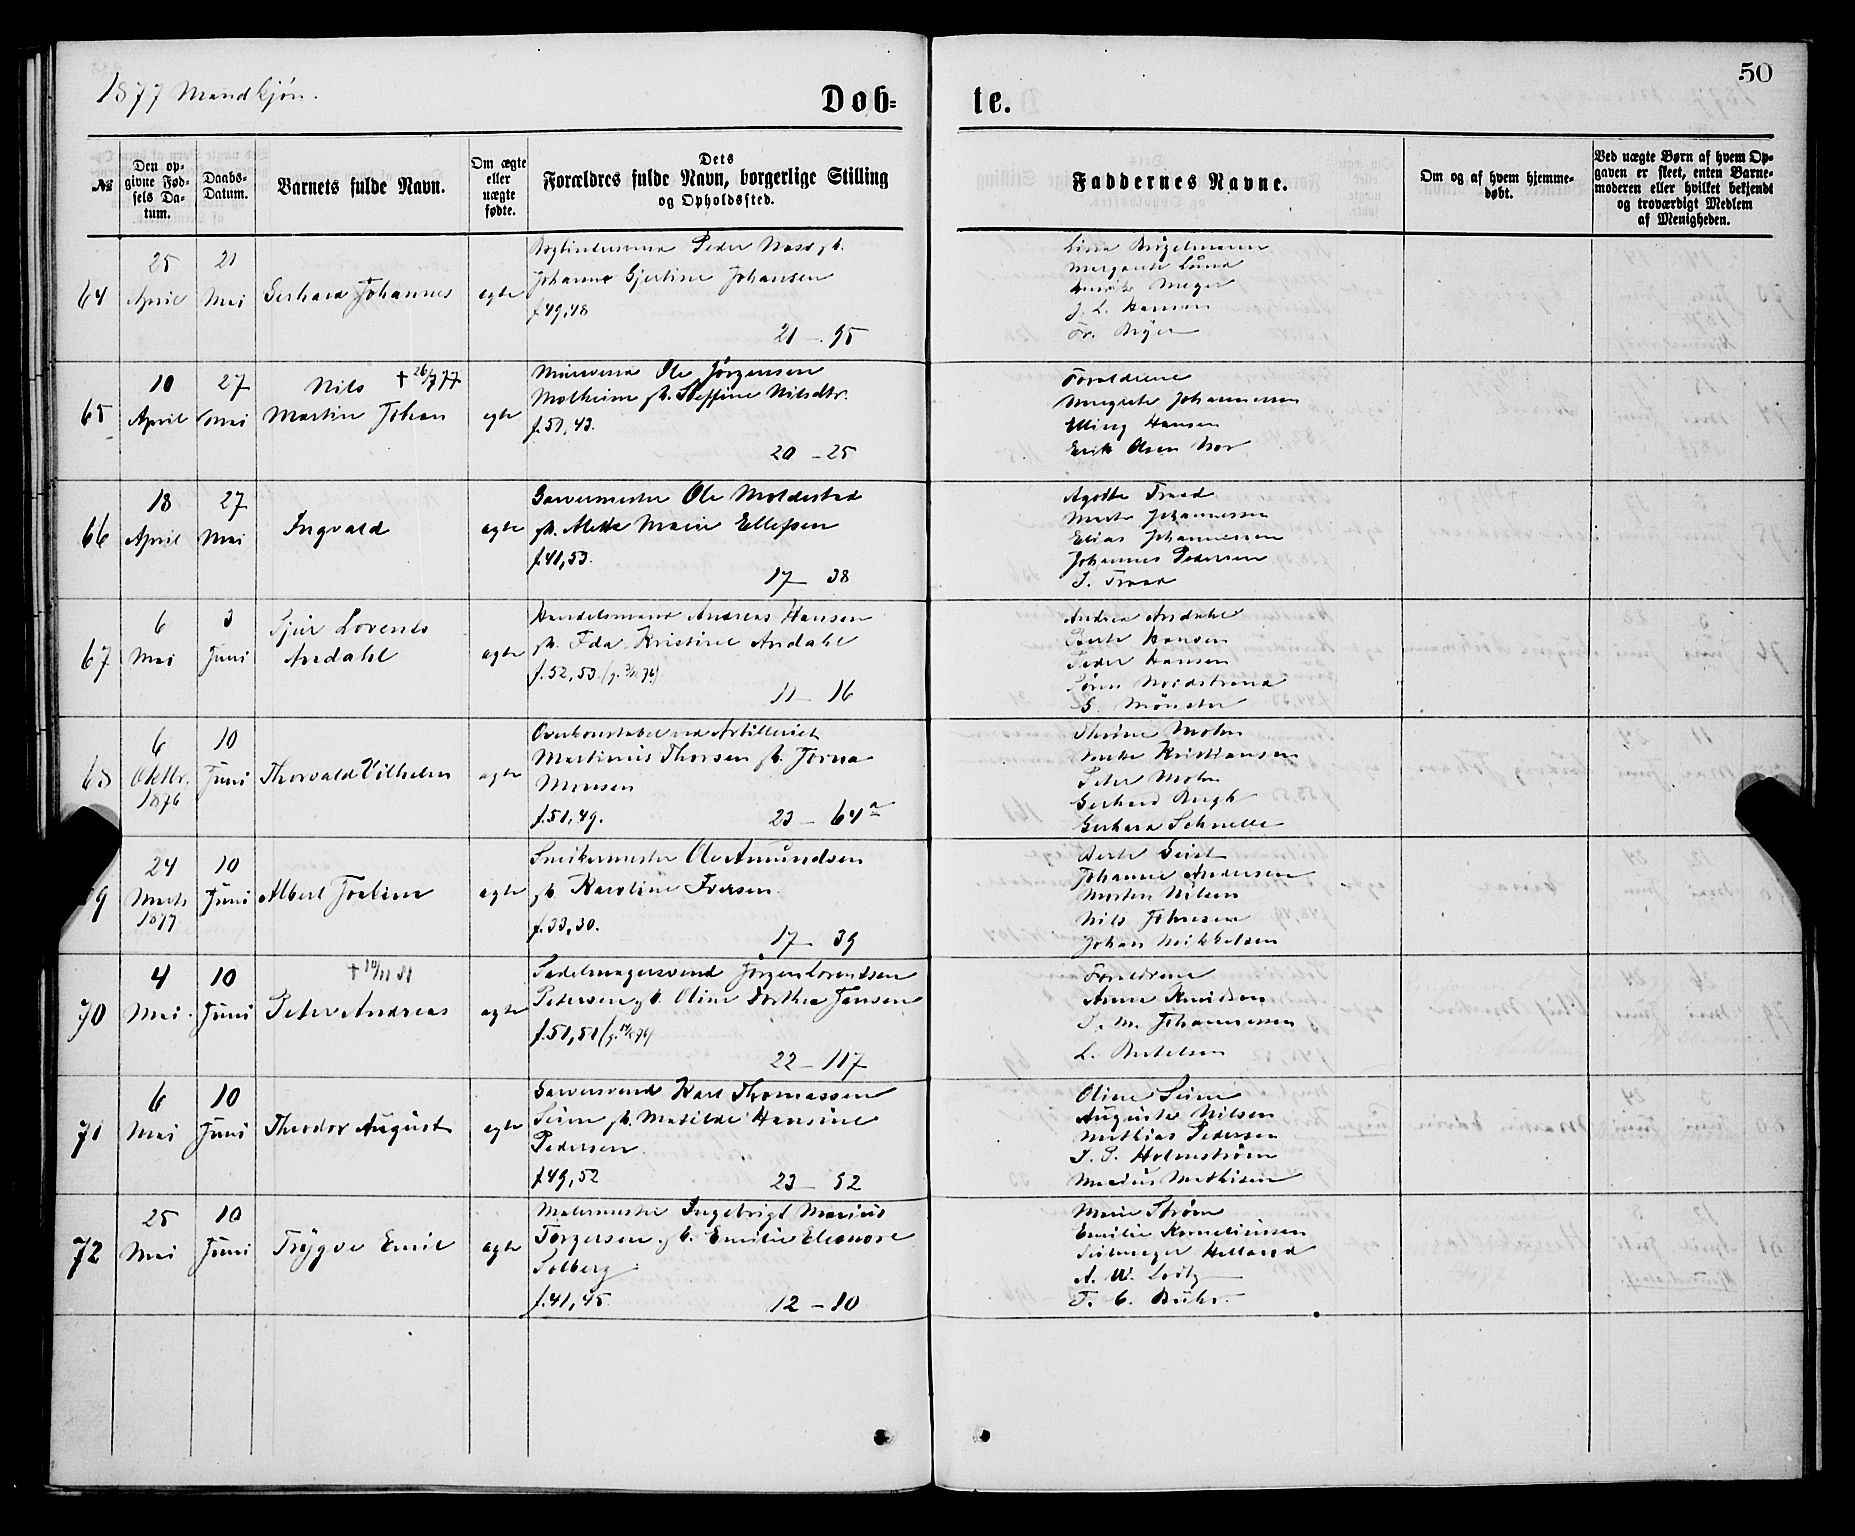 1877 Mandkjøn.
Døb-
te.
50
No
Den op-
givne Fød-
sels Da-
tum.
Daabs-
Datum.
Barnets fulde Navn.
Om ægte
eller
uægte
fødte.
Dets
Forældres fulde Navn, borgerlige Stilling
og Opholdssted.
Faddernes Navne.
Om og af hvem hjemme-
døbt.
Ved uægte Børn af hvem Op-
gaven er skeet, enten Barne-
moderen eller hvilket bekjendt
og troværdigt Medlem
af Menigheden.
64
25
April
21
Mai
Gerhard Johannes
ægte
Peder
Johanna Gjertine Johansen
f. 49,48
21 - 95
Margarete Lund
Meyer
J. L. Hansen
Fr. Meyer
65
10
April
27
Mai
Nils † 26/7 77
Martin Johan
ægte
Ole Jørgensen
Molheim Steffine Nilsdtr.
20 - 25
Forældrene
Margrete Johannessen
Elling Hansen
Erik Olsen
66
18
April
27
Mai
Ingvald
ægte
Garvermester Ole Moldestad
Marie Ellefsen
f. 41,53.
17 - 38
Agathe Traad
Marte Johannessen
Elias Johannessen
Johannes Pedersen
J. Traad
67
6
Mai
3
Juni
Sjur Lorents
Ardahl
ægte
Handelsmand Andreas Hansen
Ida Kristine Ardahl
f. 52,53.
11 - 16
Andrea Ardahl
Berte Hansen
Peder Hansen
Søren Nordstrand
G. Mønster
68
6
Oktbr.
1876
10
Juni
Thorvald Vilhelm
ægte
Overkonstabel ved Artilleriet
Martinus Thorsen
Monsen
f. 51,49.
23 - 64a
Thrine Mohn
Kristiansen
Peter Mohn
Gerhard Bergh
Gerhard Schnelle
69
24
Marts
1877
10
Juni
Albert Joakim
ægte
Snedkermester Ole Amundsen
Karoline Iversen
f. 33,30.
17 - 39
Berte Geist
Johanne Andersen
Morten Nilsen
Nils
Johan Mikkelsen
70
4
Mai.
10
Juni
† 10/11 81
Peter Andreas
ægte
Sadelmagersvend Jørgen Lorendsen
Petersen Oline Dorthea Jansen
f. 51,51
22 - 117
Forældrene
Anne Knudsen
J. M. Johannessen
L. Bertelsen
71
6
Mai
10
Juni
Theodor August
ægte
Garversvend Karl Thomassen
Seim Matilde Hansine
Pedersen
f. 49,52
23 - 52
Oline Seim
Augusta Nilsen
Mathias Pedersen
J. P. Holmstrøm
Marius Mathisen
72
25
Mai
10
Juni
Trygve Emil
ægte
Malermester Ingebrigt Marius
Torgersen Emilie Eleonore
Solberg
f. 41,45.
12 - 10
Marie Strøm
Emilie Kornelinssen
Seilmager Helland
A. W. Lodtz